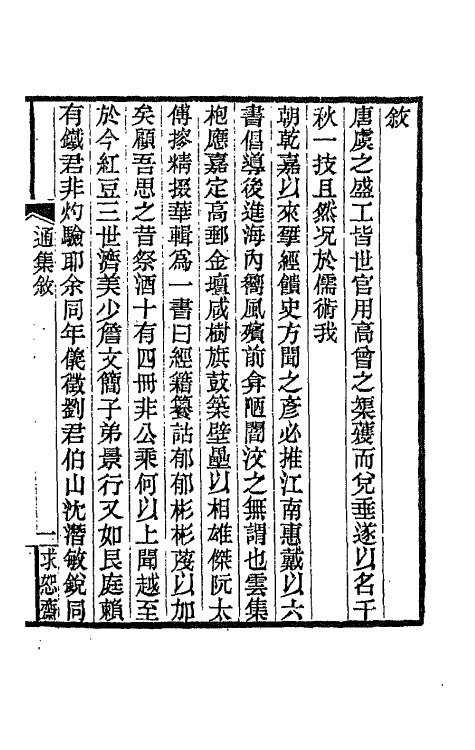 敘
唐虞之盛工皆世官用高曾之榘矱而兌垂遂以名千
秋一技且然況於儒術我
朝乾嘉以來揅經饋史方聞之彥必推江南惠戴以六
書倡導後進海內嚮風殯前弇陋闇汶之無謂也雲集
枹應嘉定高郵金壇咸樹旗鼓築壁壘以相雄傑阮太
傅摻精掇華輯為一書曰經籍籑詁郁郁彬彬蔑以加
矣顧吾思之昔祭酒十有四冊非公乘何以上聞越至
於今紅豆三世濟美少詹文簡子弟景行又如艮庭賴
有鐵君非灼驗耶余同年儀徵劉君伯山沈潛敏銳同
通集敘
一
求恕齋